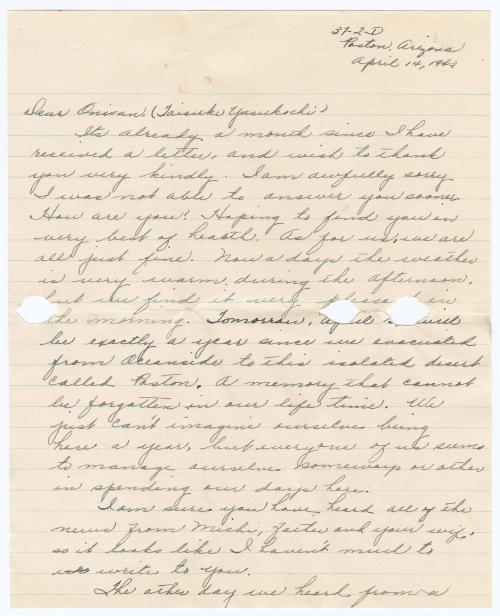 37-2-D
Poston, Arizona
April 14, 1943
Dear Onisan, (Taisuke Yasukochi)
Its already a month since I have
received a letter, and wish to thank
you very kindly. I am awfully sorry
I was not able to answer you sooner.
How are you? Hoping to find you in
very best of health. As for us, we are
all just fine. Now a days the weather
is very warm during the afternoon,
but we find it very in
the morning. Tomorrow, April will
be exactly a year since we evacuated
from Oceanside to this isolated desert
called Poston. A memory that cannot
be forgotten in our life time. We
just can't imagine ourselves being
here a year, but everyone of us seems
to manage ourselves someways or other
in spending our days here.
I am sure you have heard all of the
news from Michi, and your wife,
so it looks like I haven't much to
write to you.
The other day we heard from a